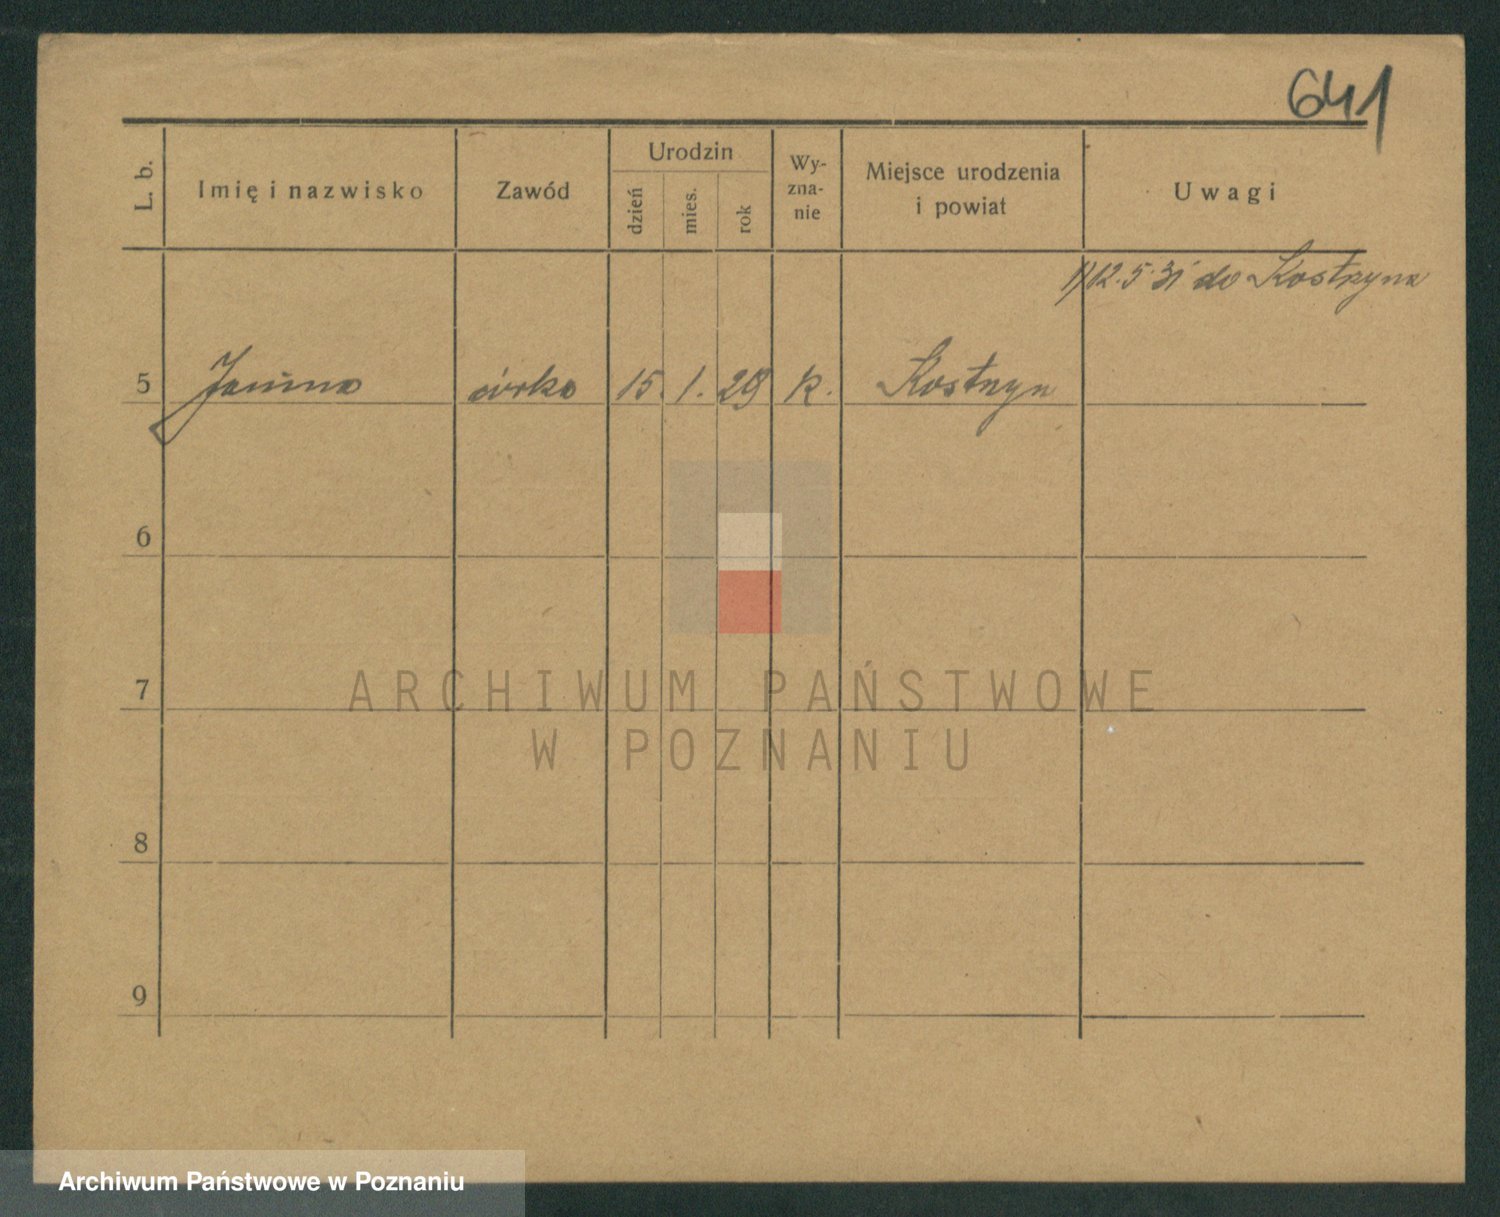 641
L. b.
Imię i nazwisko
Zawód
Urodzin
dzień
mies.
rok
Wy-
zna-
nie
Miejsce urodzenia
i powiat
Uwagi
1) 12.5.31 do Kostrzyna
5 Janina córka 15. 1. 29 k. Kostrzyn
6
7
8
9
ARCHIWUM PAŃSTWOWE
W POZNANIU
Archiwum Państwowe w Poznaniu